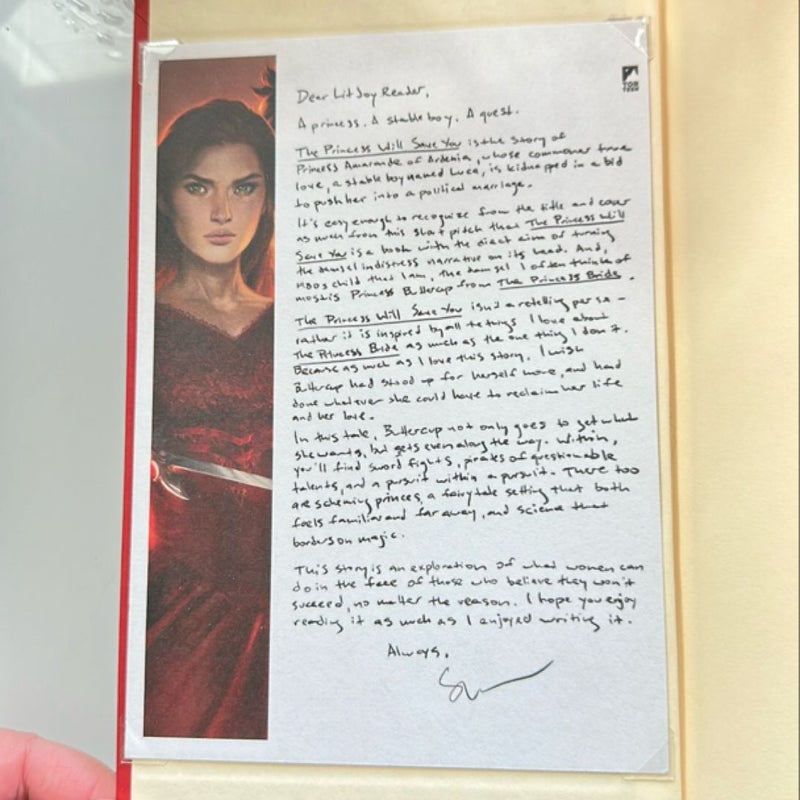 Dear LitJoy Reader,
TOR
TEEN
A princess. A stable boy. A quest.
The Princess Will Save You is the story of
Princess Amarande of Ardenia, whose commoner true
love, a stable boy named Luca, is kidnapped in a bid
to push her into a political marriage.
It's easy enough to recognize from the title and cover
as much from this short pitch that The Princess Will
Save You is a book with the direct aim of turning
the damsel in distress narrative on its head. And,
1980s child that I am, the damsel I often think of
most is Princess Buttercup from The Princess Bride.
The Princess Will Save You isn't a retelling per se -
rather it is inspired by all the things I love about
The Princess Bride as much as the one thing I don't.
Because as much as I love this story, I wish
Buttercup had stood up for herself more, and had
done whatever she could have to reclaim her life
and her love.
In this tale, Buttercup not only goes to get what
she wants, but gets even along the way. Within,
you'll find sword fights, pirates of questionable
talents, and a pursuit within a pursuit. There too
are scheming princes, a fairytale setting that both
feels familiar and far away, and science that
borders on magic.
This story is an exploration of what women can
do in the face of those who believe they won't
succeed, no matter the reason. I hope you enjoy
reading it as much as I enjoyed writing it.
Always,